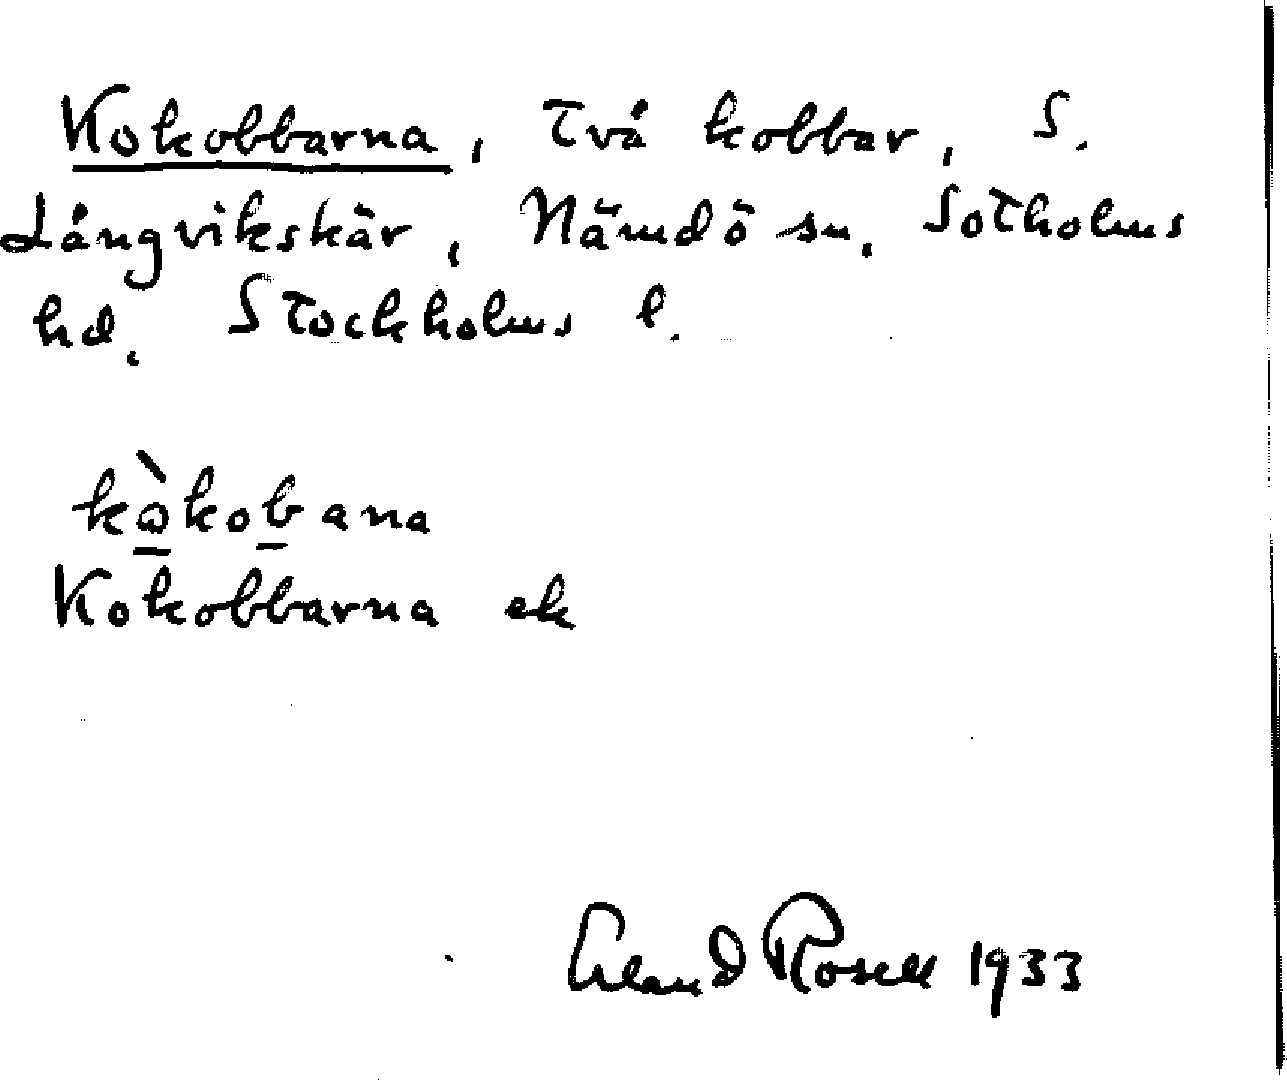 Kokobbarna, två kobbar, S.
Långvikskär, Nämdö sn. Sotholms
hd. Stockholms l.
kòkobana
Kokobbarna ek
Erland Rosell 1933